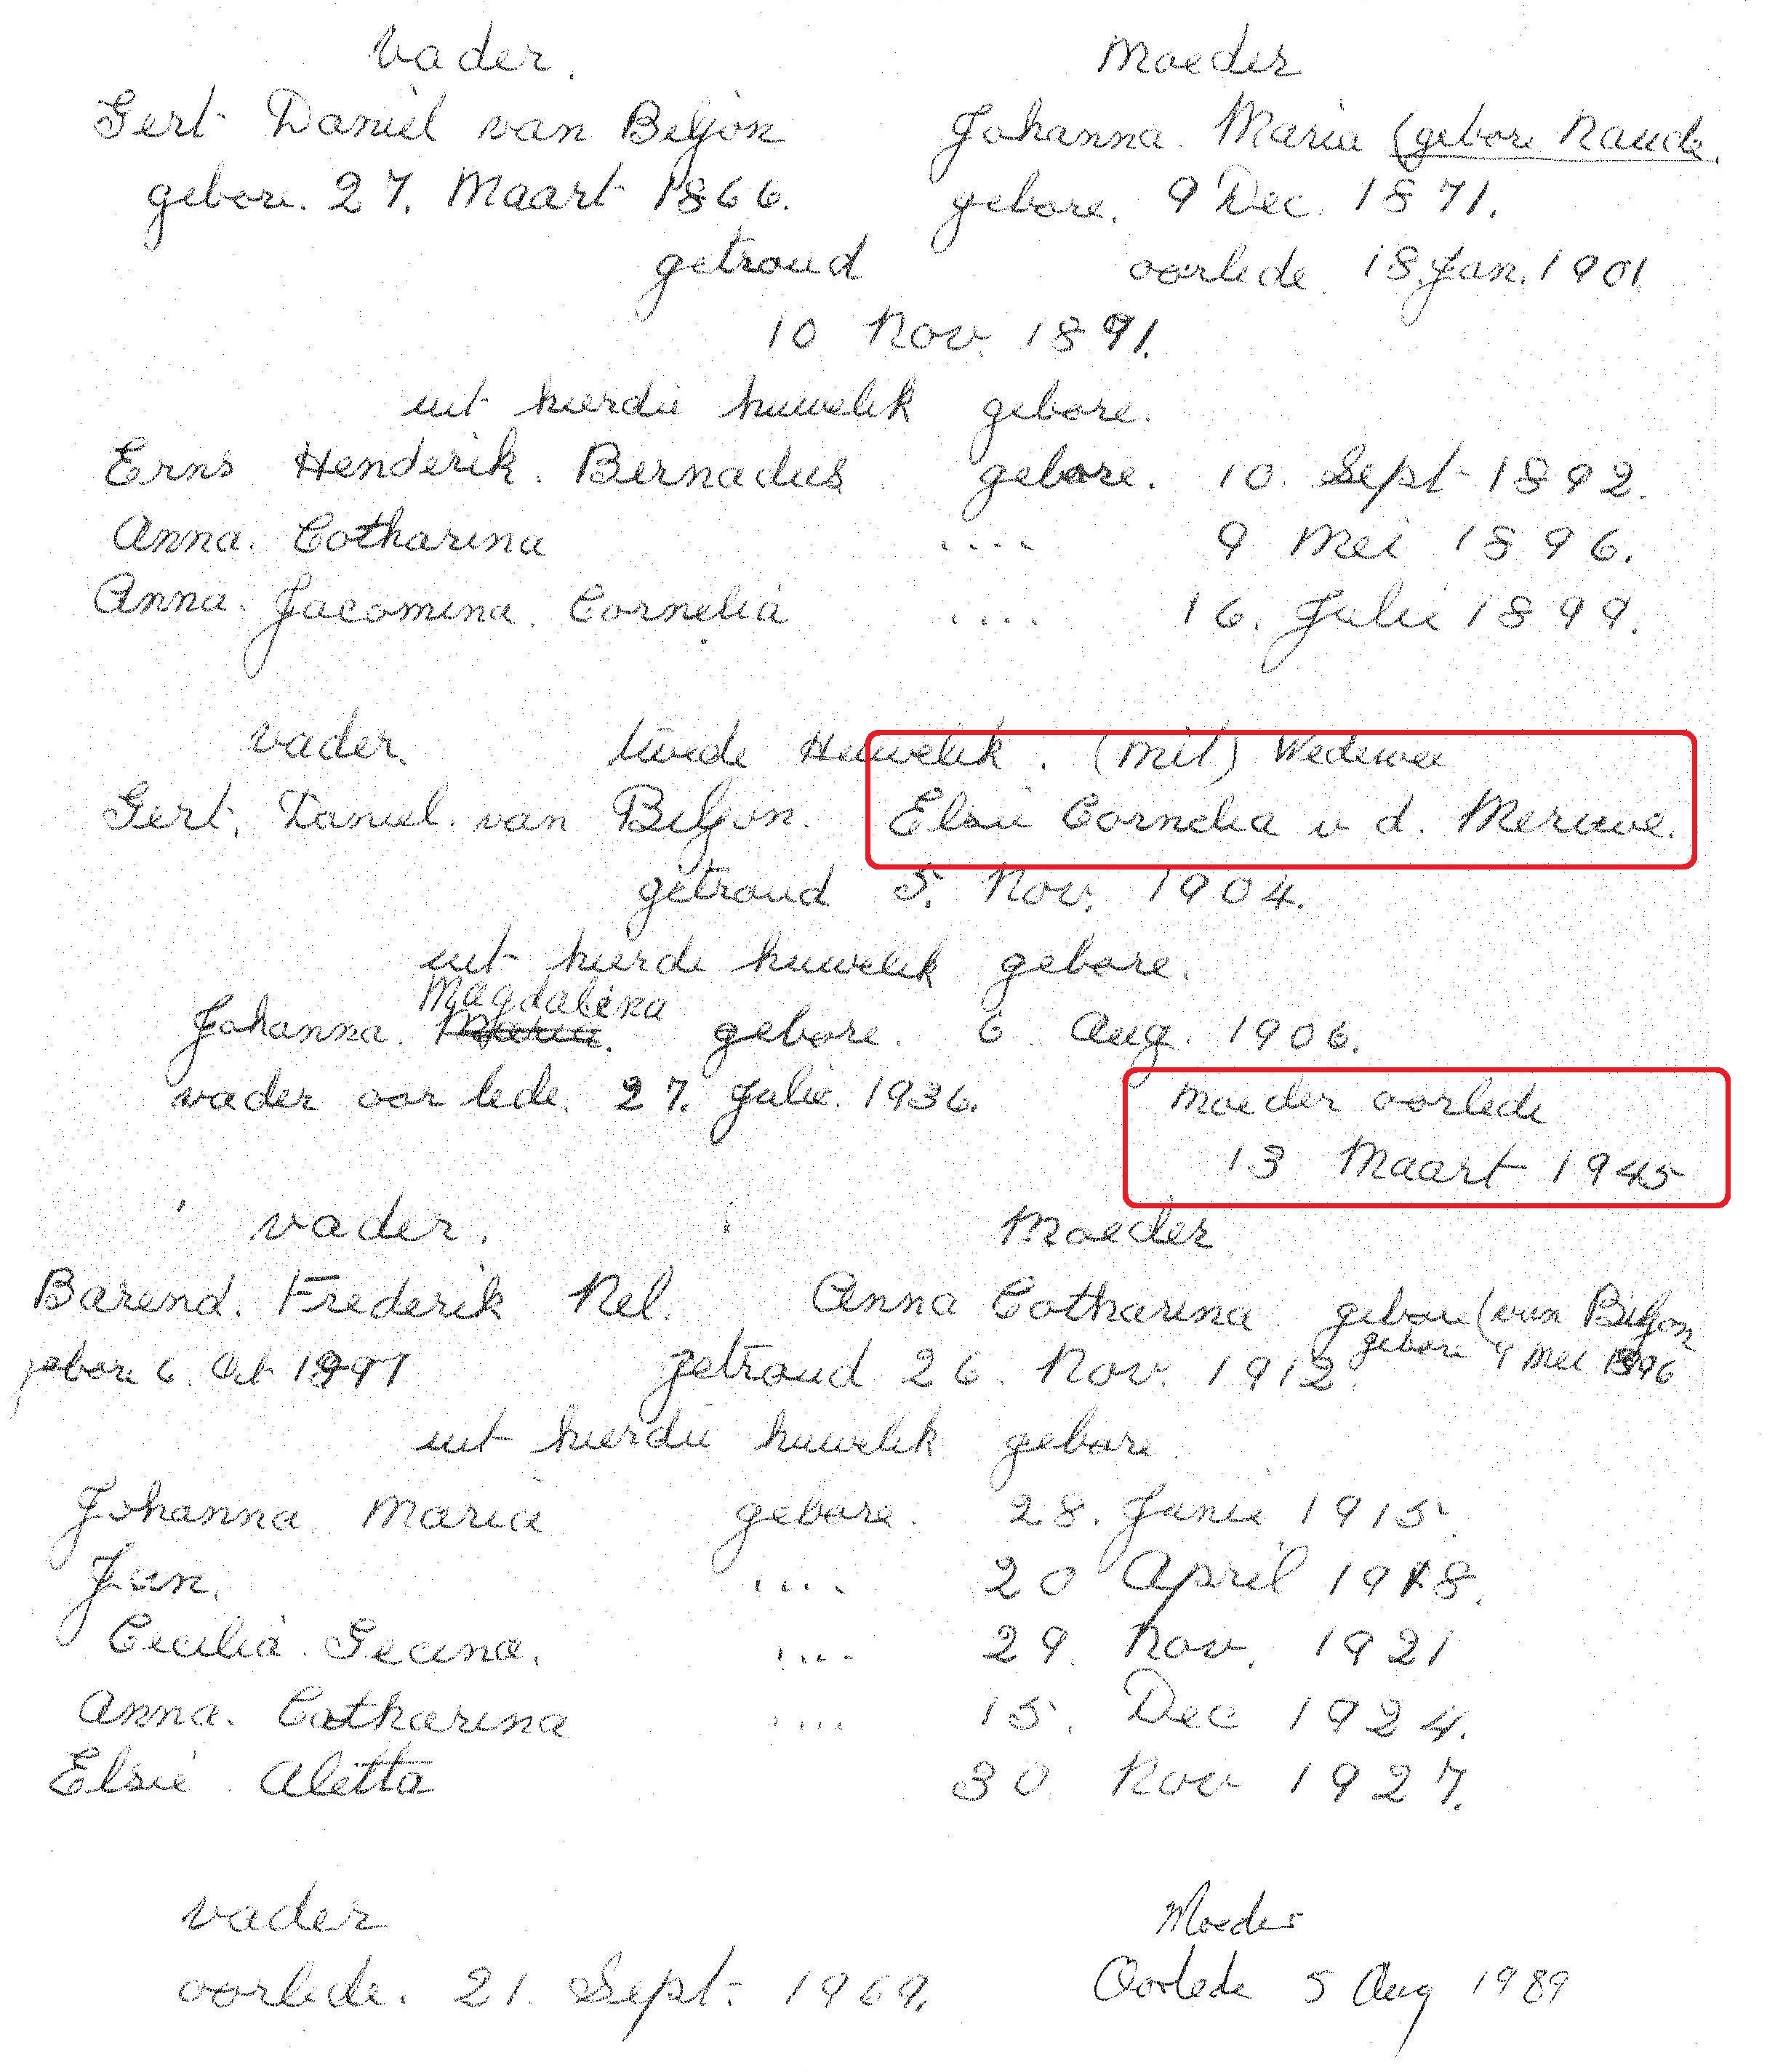 Vader. Moeder
Gert Daniel van Biljon Johanna Maria (gebore Naude.
gebore. 27. Maart 1866. gebore. 9 Dec. 1871.
getroud oorlede. 18 Jan. 1901
10 Nov. 1891.
uit hierdie huwelik gebore.
Erns Henderik. Bernadus gebore. 10. Sept 1892.
Anna. Catharina .... 9 Mei 1896.
Anna. Jacomina. Cornelia .... 16. Julie 1899.
vader. twede Huwelik. (mit) Wedewee
Gert. Daniel. van Biljon. Elsie Cornelia v d. Meruwe.
getroud 5. Nov. 1904.
uit hierde huwelik gebore.
Magdalena
Johanna. Maria. gebore. 6 Aug. 1906.
vader oor lede. 27. Julie. 1936. Moeder oorlede
13 Maart 1945
vader. Moeder
Barend. Frederik Nel. Anna Catharina gebore (van Biljon
gebore 6. Oct getroud 26. Nov. 1912. gebore 9 Mei 1896
uit hierdie huwelik gebore
Johanna Maria gebore. 28. Junie 1915.
Jan. .... 20 April 1918.
Cecilia. Gecina. .... 29. Nov. 1921
Anna. Catharina .... 15. Dec 1924.
Elsie. Aletta 30 Nov 1927.
vader Moeder
oorlede. 21. Sept. 1969. Oorlede 5 Aug 1989